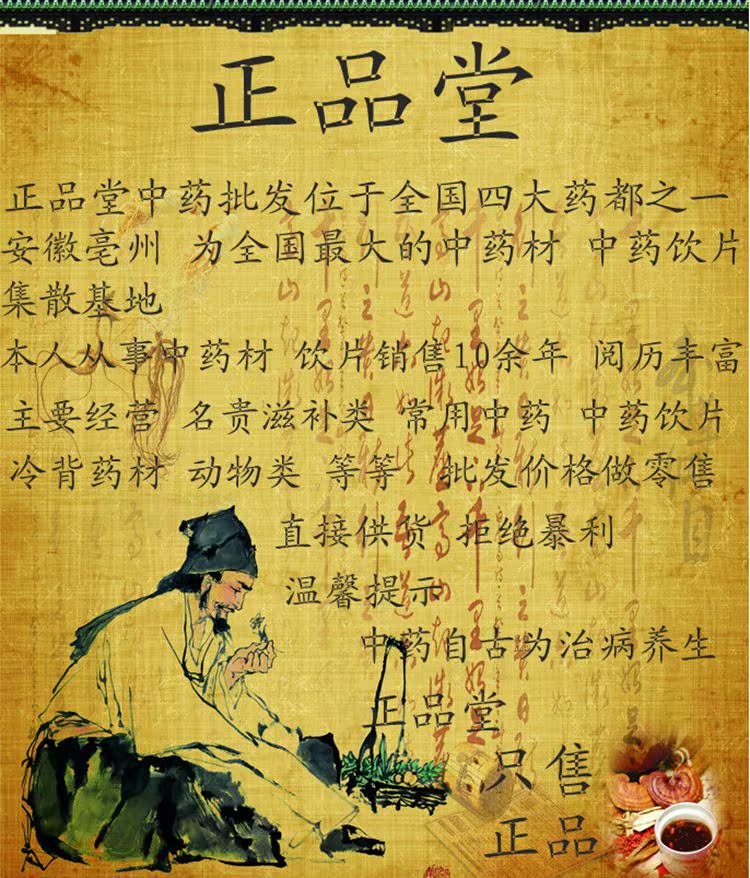 正品堂
正品堂中药批发位于全国四大药都之一
安徽亳州 为全国最大的中药材 中药饮片
集散基地
本人从事中药材 饮片销售10余年 阅历丰富
主要经营 名贵滋补类 常用中药 中药饮片
冷背药材 动物类 等等 批发价格做零售
直接供货 拒绝暴利
温馨提示
中药自古为治病养生
正品堂
只售
正品